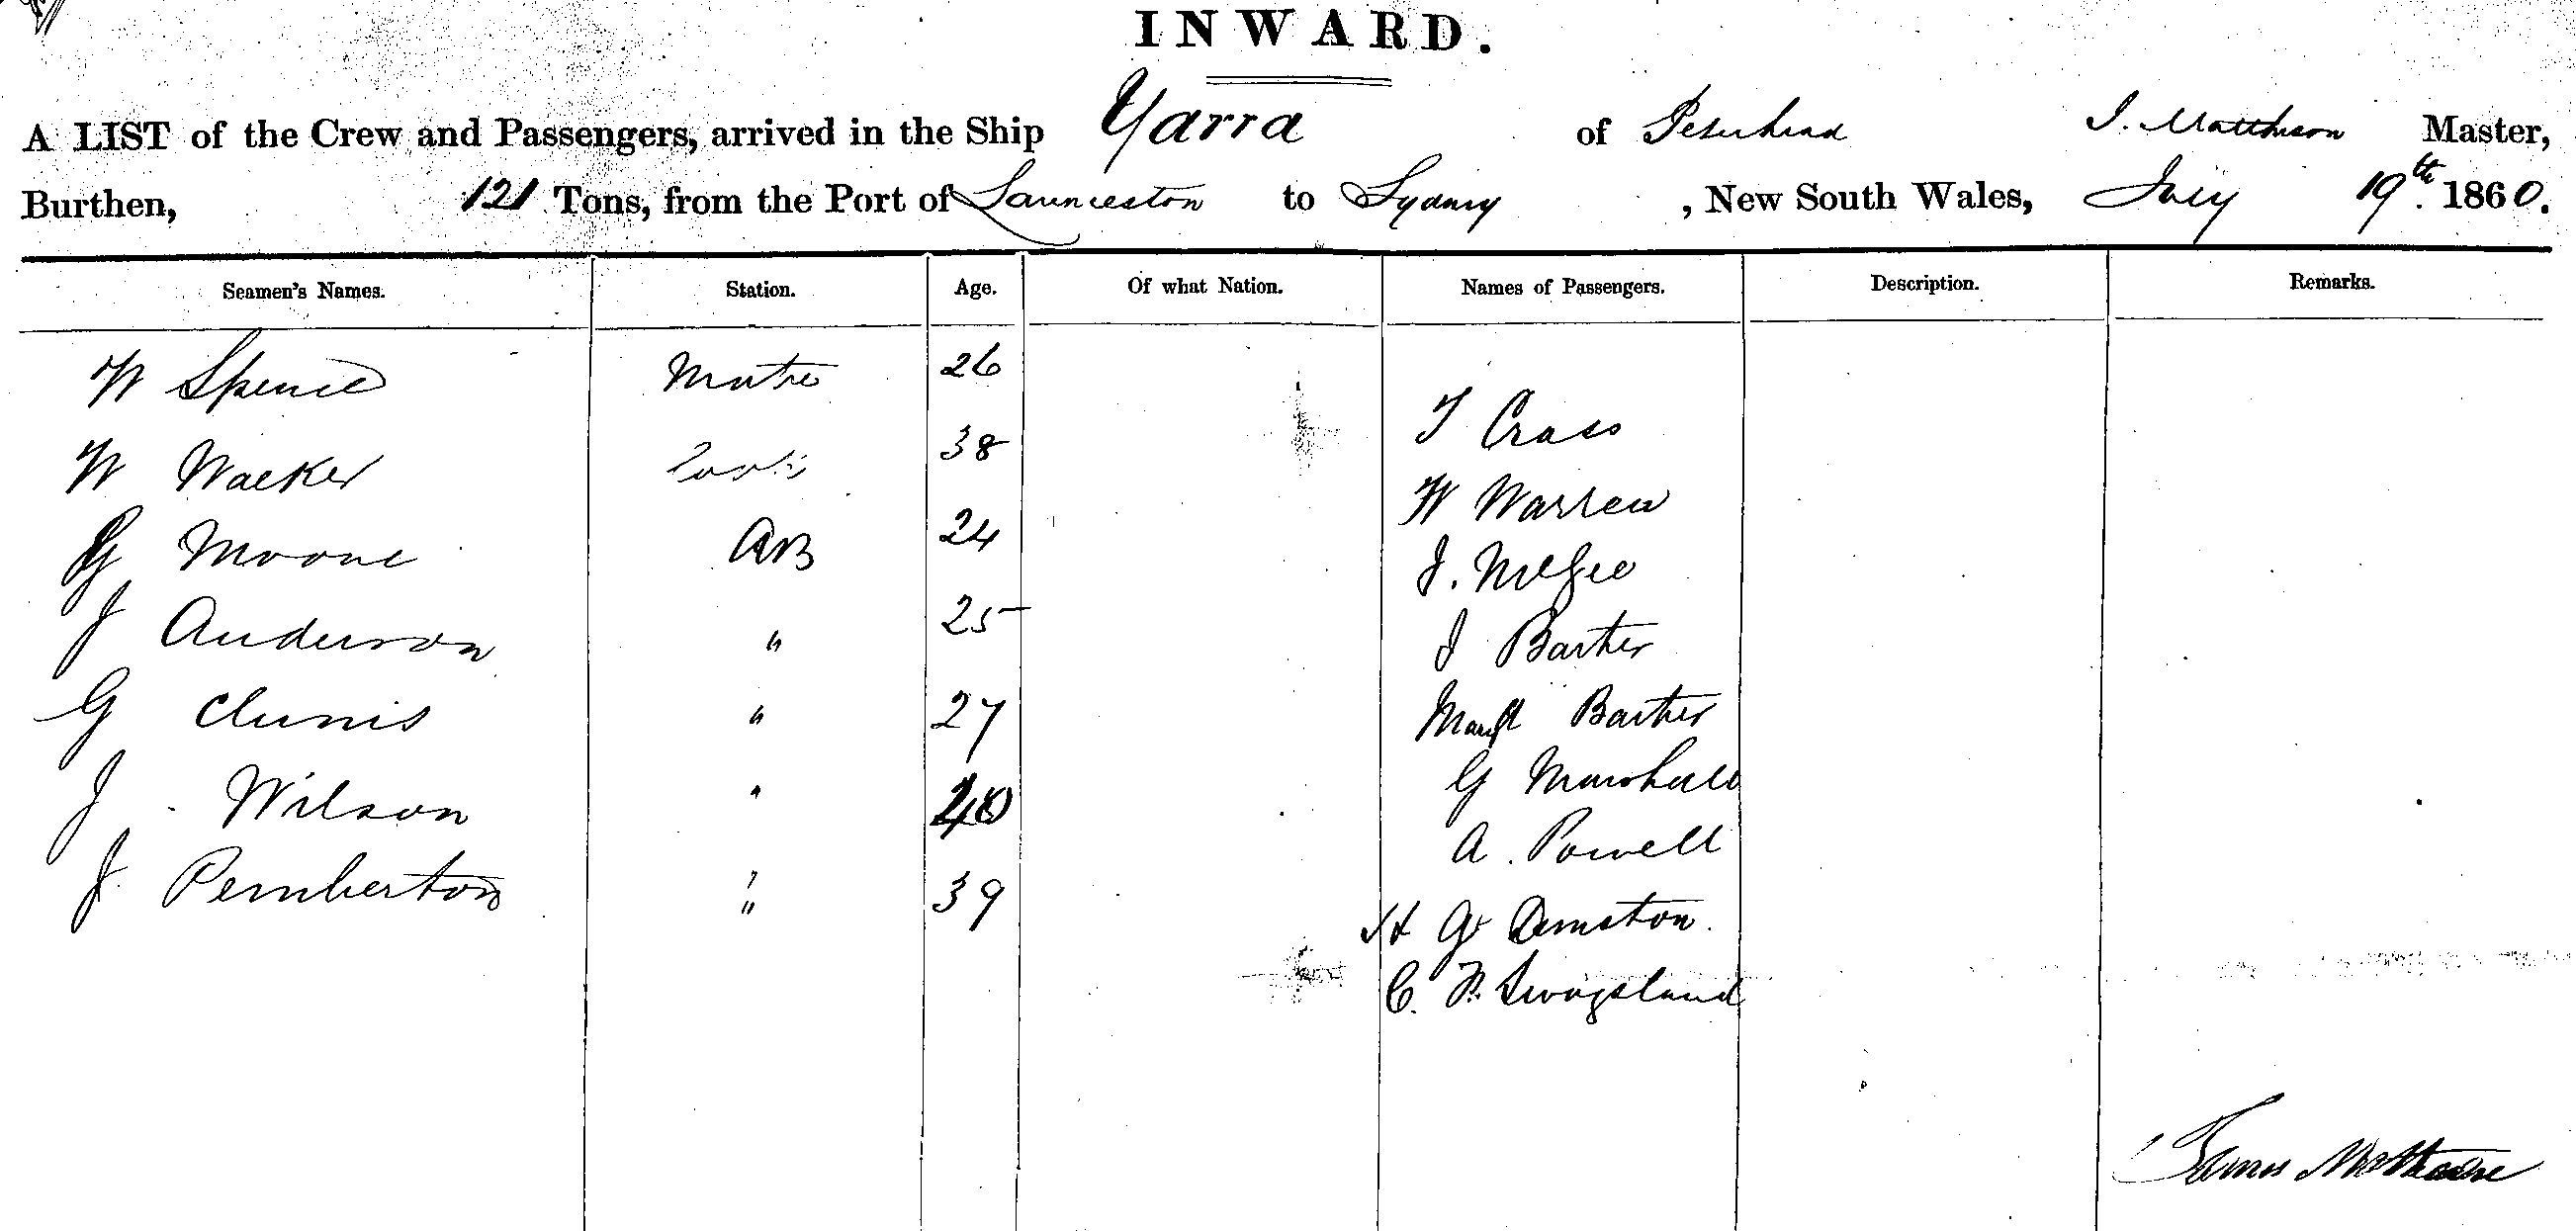 INWARD.
A LIST of the Crew and Passengers, arrived in the Ship Yarra of Peterhead J. Matthison Master,
Burthen, 121 Tons, from the Port of Launceston to Sydney, New South Wales, July 19th. 1860.
Seamen's Names. Station. Age. Of what Nation. Names of Passengers. Description. Remarks.
W Spence Mate 26
T Cross
W Walker Cook 38
W Warren
G Moore AB 24
J. McGee
J Anderson " 25
J Barker
G Clunis " 27
Barker
G Marshall
J Wilson "
A. Powell
J. Pemberton " 39
H G
C. F. Swogsland
James